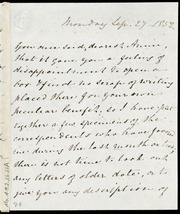 Monday Sep. 27 1852.
You once said, dearest Anne,
that it gave you a feeling of
disappointment to open a
box & find no scrap of writing
placed there for your own
peculiar benefit, so I have put
together a few specimens of the
correspondents who have favored
me during the last month or two,
there is not time to look out
any letters of older date, or to
give you any description of